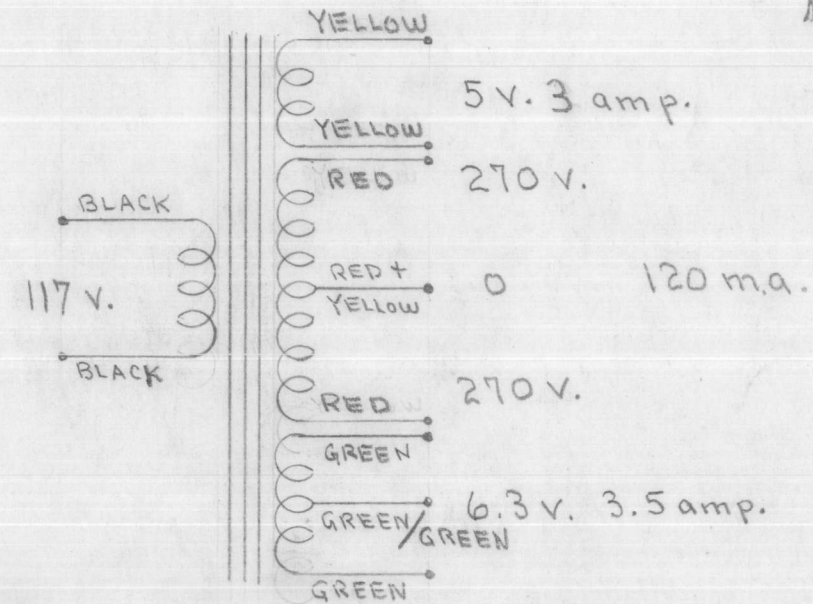 YELLOW
5 v. 3 amp.
YELLOW
RED
270 v.
BLACK
RED +
YELLOW
0
120 m.a.
117 v.
BLACK
RED
270 v.
GREEN
GREEN/GREEN
6.3 v. 3.5 amp.
GREEN